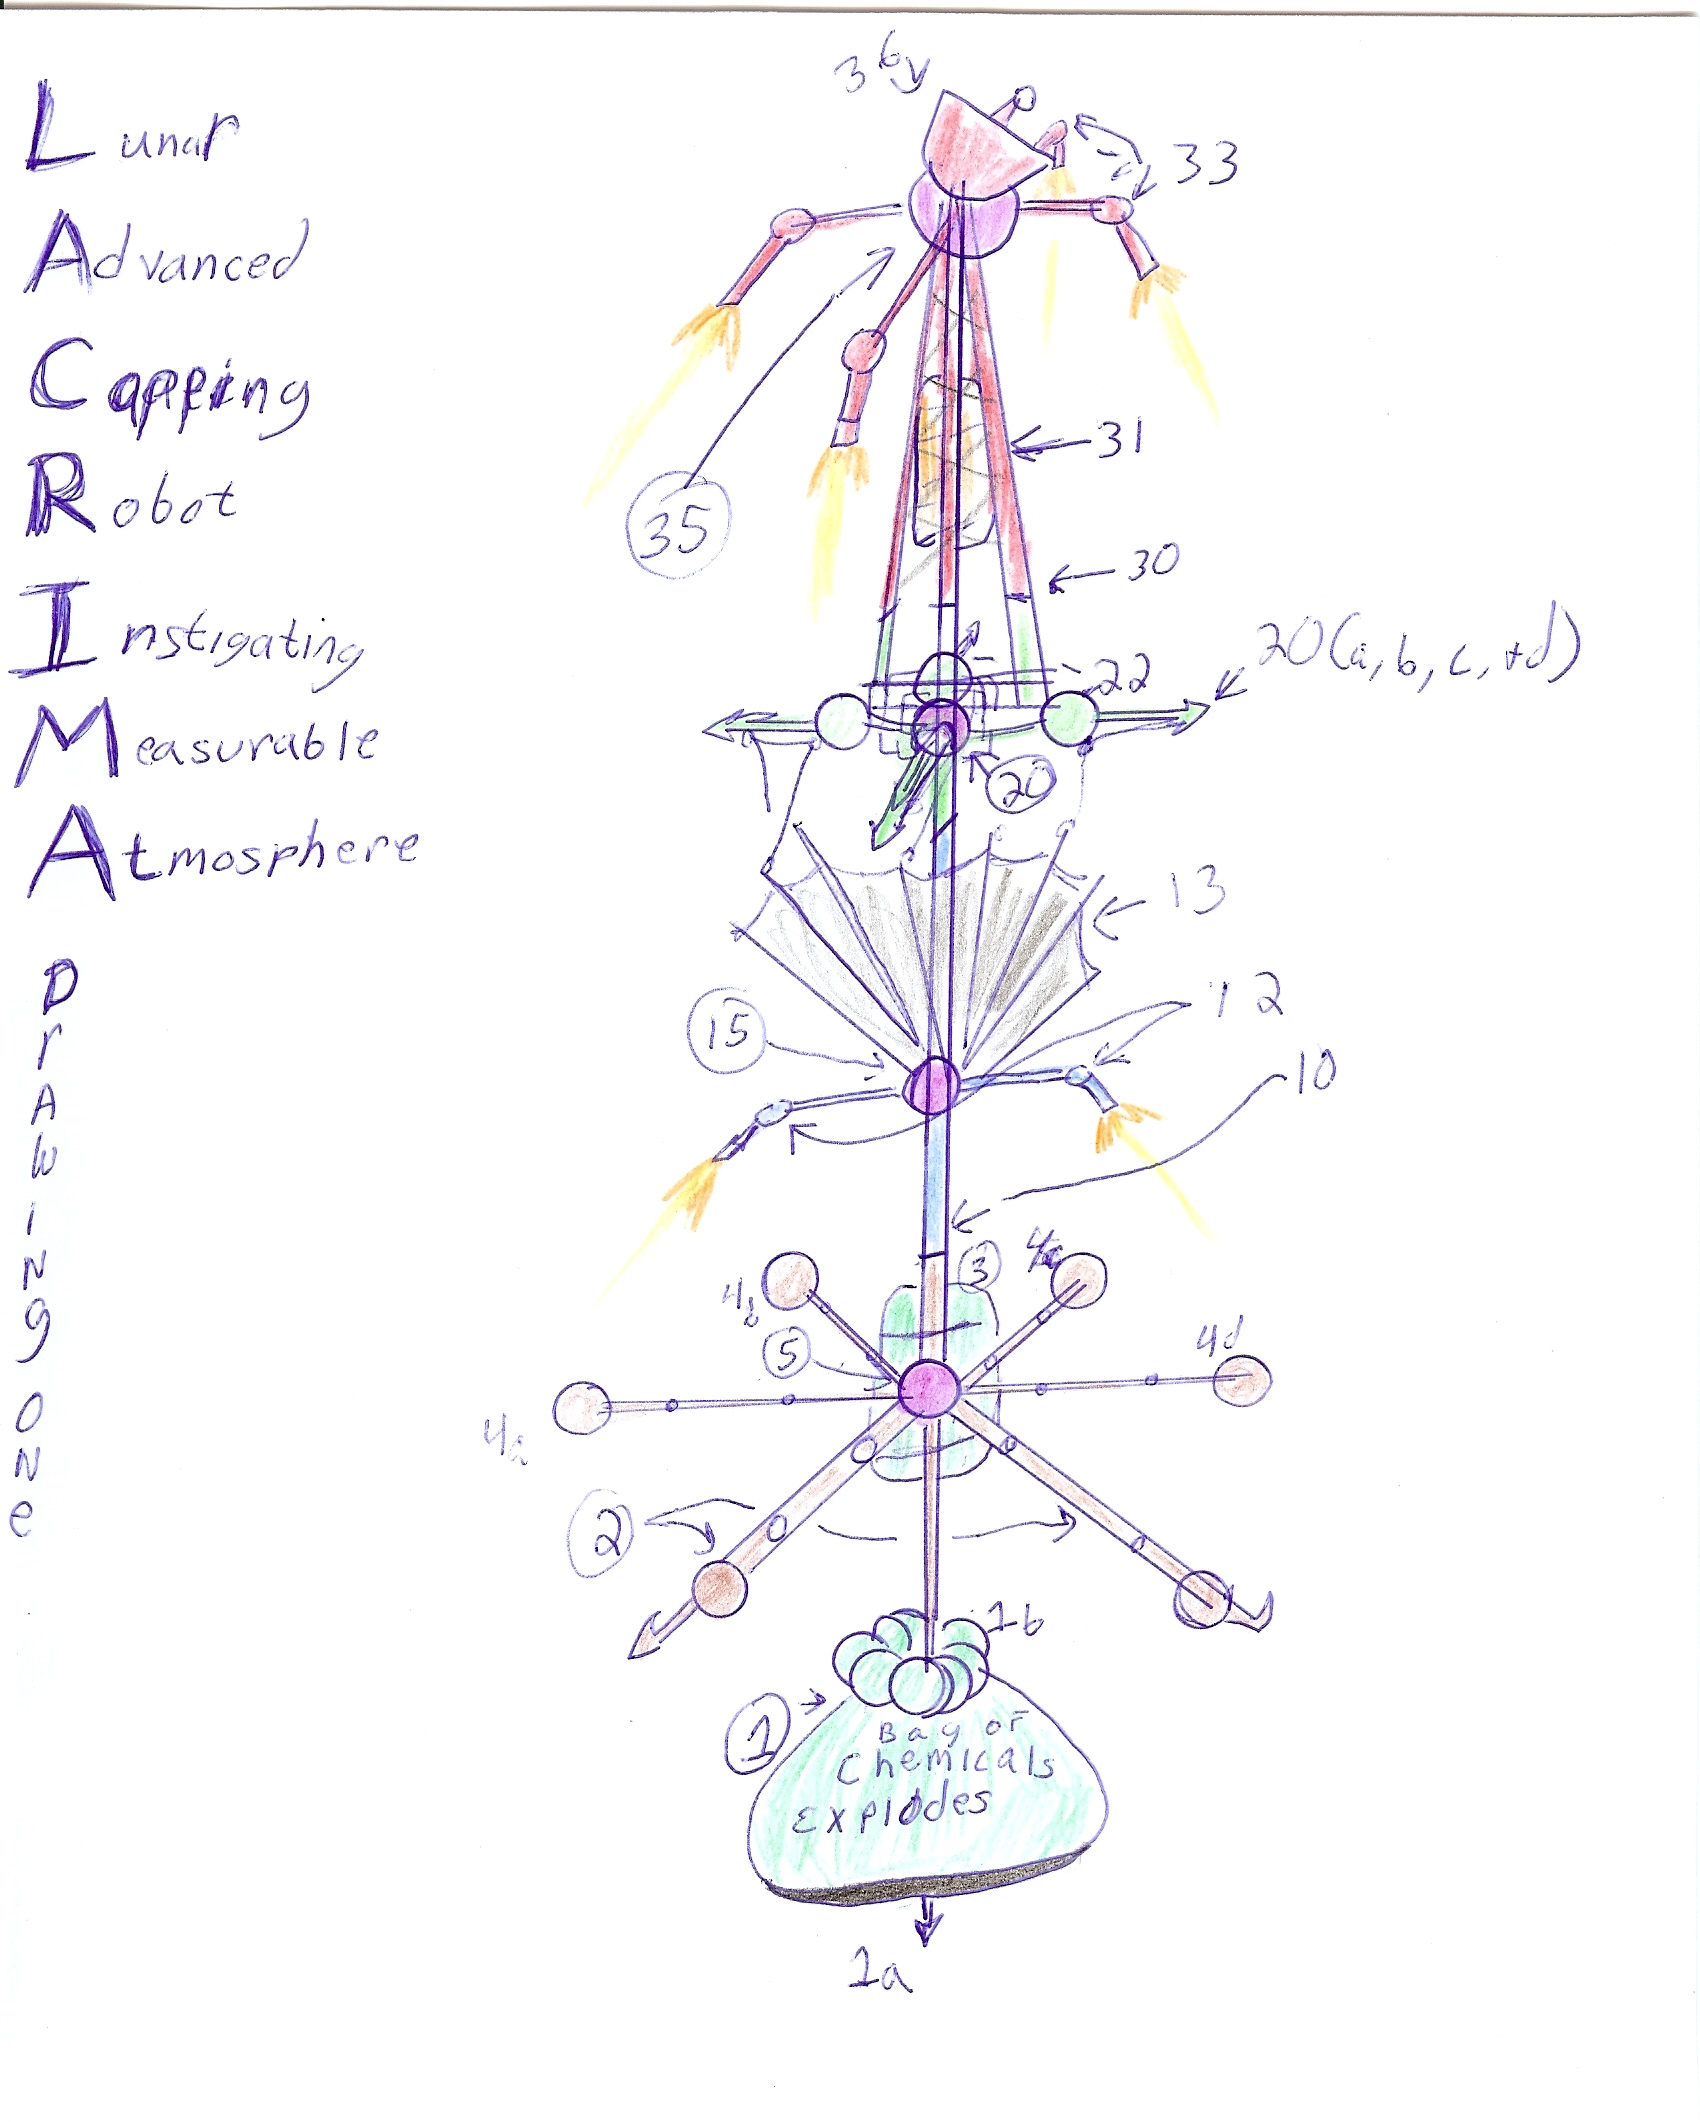 Lunar
Advanced
Capping
Robot
Instigating
Measurable
Atmosphere
Drawing one
36y
33
35
31
30
20(a, b, c, +d)
22
20
13
15
12
10
3
4b
4d
5
4a
2
1b
1
Bay of
Chemicals
Explodes
1a